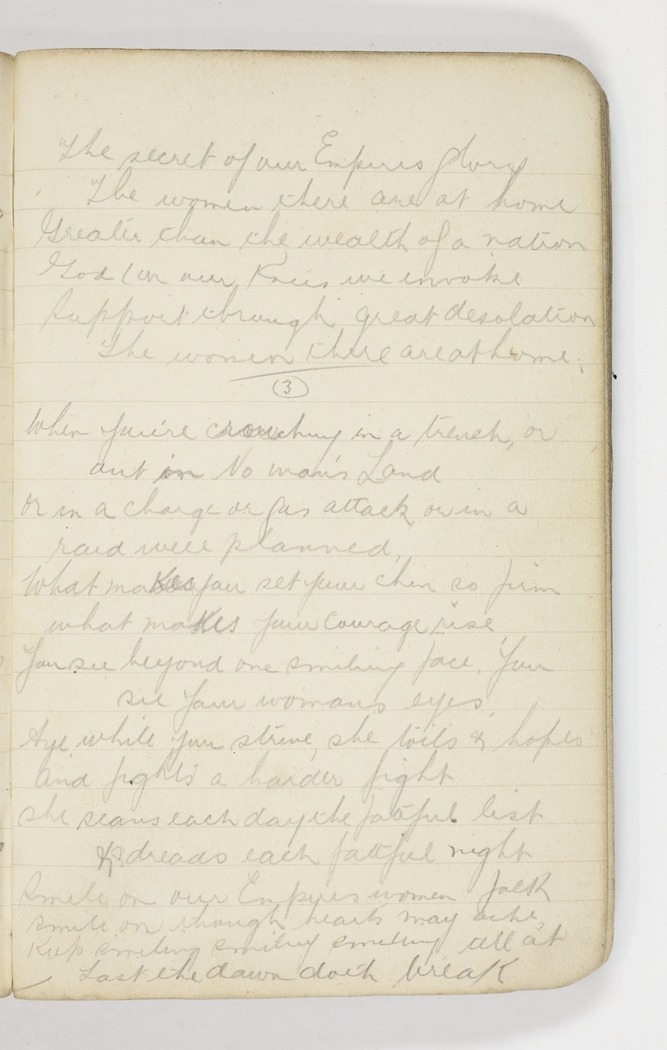 The secret of our Empires glory
The women there are at home
Greater than the wealth of a nation
God on our Knees we invoke
Support through great desolation
The women there are at home.
(3)
When you're crouching in a trench, or
out in No man's Land
or in a charge or gas attack or in a
raid well planned,
What makes you set your chin so firm
what makes your courage rise
You see beyond one smiling face, you
see your womans eyes
Aye while you strive, she toils & hopes
and fights a harder fight
she scans each day the fateful list
& dreads each fateful night
Smile on our Empires women folk
smile on though hearts may ache,
Keep smiling smiling smiling till at
Last the dawn doth break